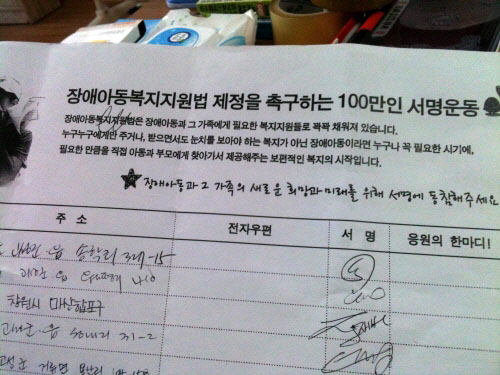 장애아동복지지원법 제정을 촉구하는 100만인 서명운동
장애아동복지지원법은 장애아동과 그 가족에게 필요한 복지지원들로 꽉꽉 채워져 있습니다.
누구누구에게만 주거나, 받으면서도 눈치를 보아야 하는 복지가 아닌 장애아동이라면 누구나 꼭 필요한 시기에,
필요한 만큼을 직접 아동과 부모에게 찾아가서 제공해주는 보편적인 복지의 시작입니다.
장애아동과 그 가족의 새로운 희망과 미래를 위해 서명에 동참해주세요
주 소 전자우편 서 명 응원의 한마디!
읍 송학리 329-15
읍
창원시 마산합포구
읍 31-2
고성군 거류면